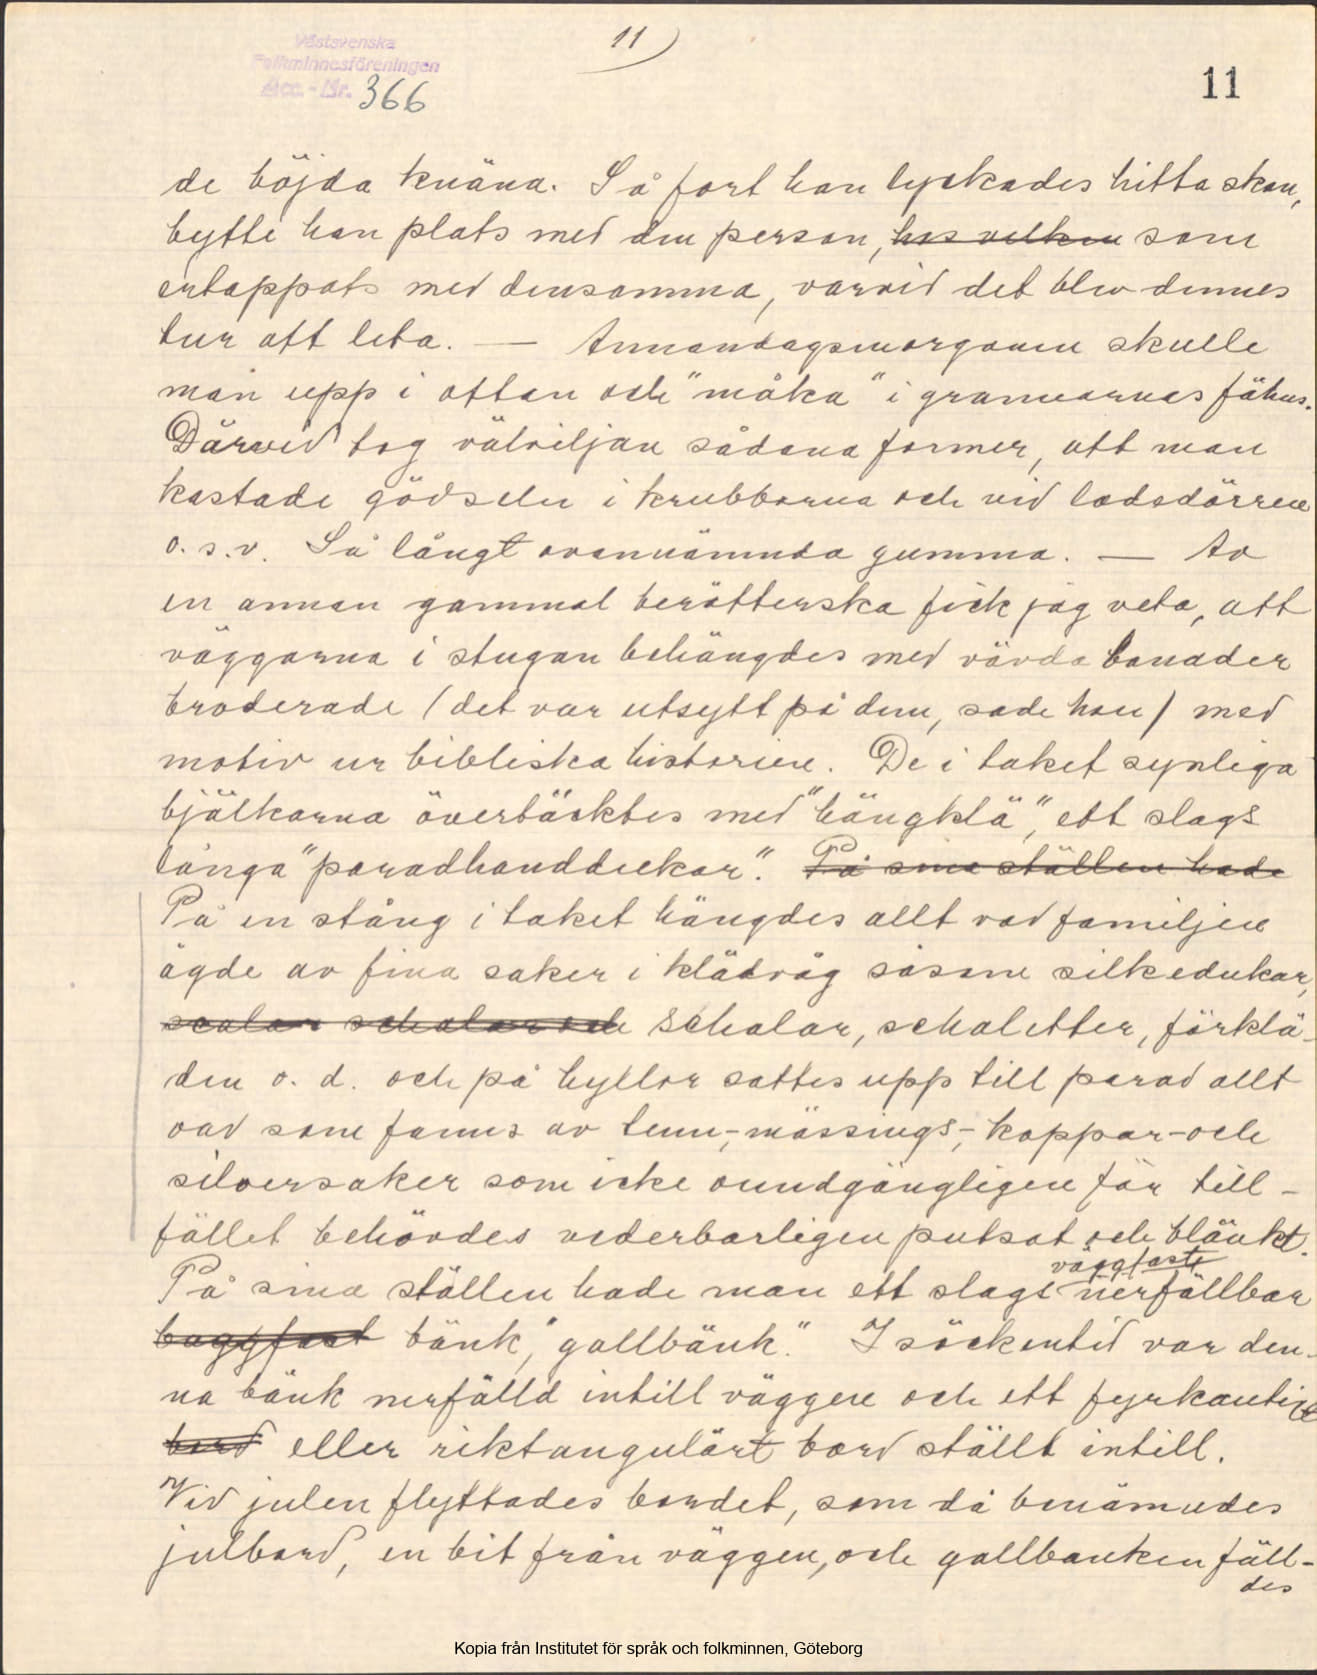 11)
Västsvenska
Folkminnesföreningen
Acc. - Nr. 366
11
de böjda knäna. Så fort han lyckades hitta skon,
bytte han plats med den person, hos vilken som
ertappats med densamma, varvid det blev dennes
tur att leta. — Annandagsmorgonen skulle
man upp i ottan och "måka" i grannarnas fähus.
Därvid tog välviljan sådana former, att man
kastade gödseln i krubborna och vid ladsdörren
o. s. v. Så långt ovannämnda gumma. — Av
en annan gammal berätterska fick jag veta, att
väggarna i stugan behängdes med vävda bonader
broderade (det var utsytt på dem, sade hon) med
motiv ur bibliska historien. De i taket synliga
bjälkarna övertäcktes med "hängklä", ett slags
långa "paradhanddukar". På sina ställen hade
På en stång i taket hängdes allt vad familjen
ägde av fina saker i klädväg såsom silkedukar,
scalar schalar och schalar, schaletter, förklä-
den o. d. och på hyllor sattes upp till parad allt
vad som fanns av tenn-, mässings-, koppar- och
silversaker som icke oundgängligen för till-
fället behövdes vederbörligen putsat och blänkt.
väggfast
På sina ställen hade man ett slags nerfällbar
baggfast bänk, "gallbänk". I söckentid var den-
na bänk nerfälld intill väggen och ett fyrkantigt
bord eller riktangulärt bord ställt intill.
Vid julen flyttades bordet, som då benämndes
julbord, en bit från väggen, och gallbänken fäll-
des
Kopia från Institutet för språk och folkminnen, Göteborg